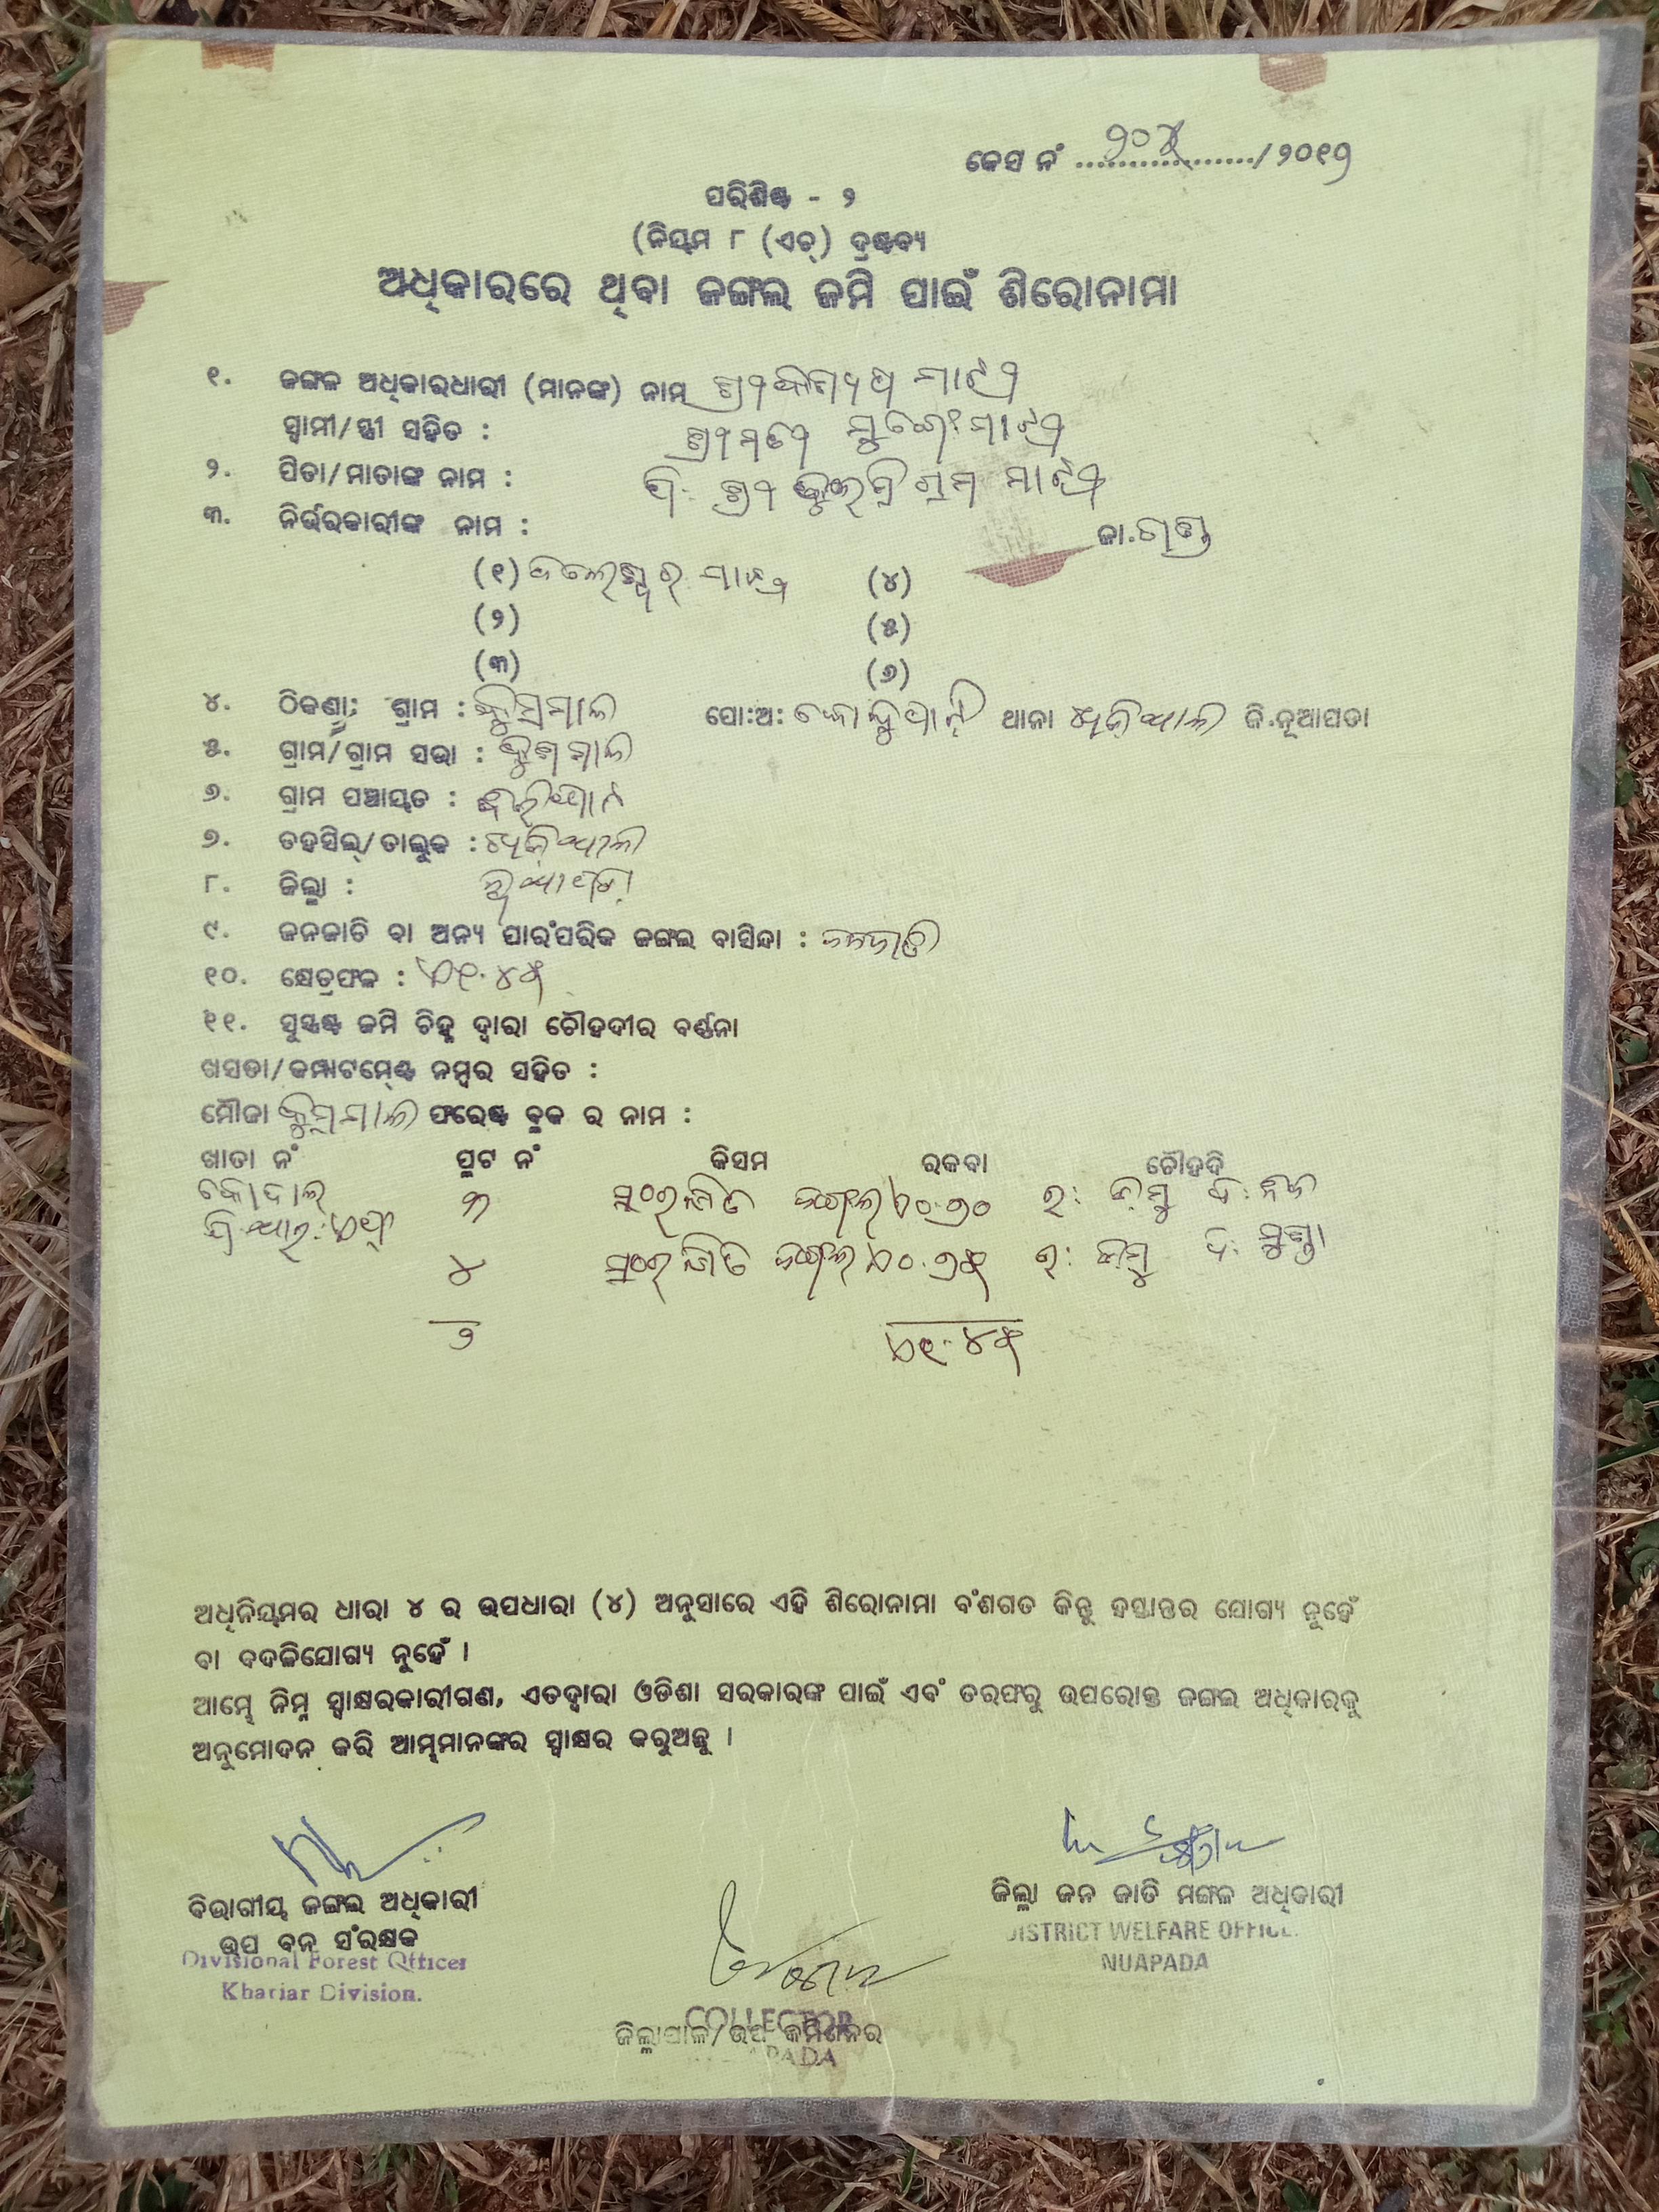 କେସ ନଂ ................../୨୦୧୨
ପରିଶିଷ୍ଟ - ୨
(ନିୟମ ୮ (ଏଚ୍) ଦ୍ରଷ୍ଟବ୍ୟ
ଅଧିକାରରେ ଥିବା ଜଙ୍ଗଲ ଜମି ପାଇଁ ଶିରୋନାମା
୧. ଜଙ୍ଗଳ ଅଧିକାରଧାରୀ (ମାନଙ୍କ) ନାମ ମାଝୀ
ସ୍ୱାମୀ/ସ୍ତ୍ରୀ ସହିତ : ଶ୍ରୀମତୀ ମାଝୀ
୨. ପିତା/ମାତାଙ୍କ ନାମ : ମାଝୀ
୩. ନିର୍ଭରକାରୀଙ୍କ ନାମ : ଜା.ଗଣ୍ଡ
(୧) ମାଝୀ (୪)
(୨) (୫)
(୩) (୬)
୪. ଠିକଣା: ଗ୍ରାମ : ପୋ:ଅ: ଥାନା ଖଡ଼ିଆଳ ଜି.ନୂଆପଡା
୫. ଗ୍ରାମ/ଗ୍ରାମ ସଭା :
୬. ଗ୍ରାମ ପଞ୍ଚାୟତ :
୭. ତହସିଲ୍/ତାଲୁକ : ଖଡ଼ିଆଳ
୮. ଜିଲ୍ଲା : ନୂଆପଡା
୯. ଜନଜାତି ବା ଅନ୍ୟ ପାରଂପରିକ ଜଙ୍ଗଲ ବାସିନ୍ଦା : ଜନଜାତି
୧୦. କ୍ଷେତ୍ରଫଳ : ଏ୧.୪୫
୧୧. ସୁସ୍ପଷ୍ଟ ଜମି ଚିହ୍ନ ଦ୍ୱାରା ଚୌହଦୀର ବର୍ଣ୍ଣନା
ଖସଡା/କମ୍ପାଟମେଣ୍ଟ ନମ୍ବର ସହିତ :
ମୌଜା ଫରେଷ୍ଟ ବ୍ଲକ ର ନାମ :
ଖାତା ନଂ ପ୍ଲଟ ନଂ କିସମ ରକବା ଚୌହଦି
୩ ସଂରକ୍ଷିତ ଜଙ୍ଗଲ ଏ୦.୭୦ ଉ: ଦ: ନିଜ
୪ ସଂରକ୍ଷିତ ଜଙ୍ଗଲ ଏ୦.୭୫ ଉ: ଦ:
୨ ଏ୧.୪୫
ଅଧିନିୟମର ଧାରା ୪ ର ଉପଧାରା (୪) ଅନୁସାରେ ଏହି ଶିରୋନାମା ବଂଶଗତ କିନ୍ତୁ ହସ୍ତାନ୍ତର ଯୋଗ୍ୟ ନୁହେଁ
ବା ବଦଳିଯୋଗ୍ୟ ନୁହେଁ ।
ଆମ୍ଭେ ନିମ୍ନ ସ୍ୱାକ୍ଷରକାରୀଗଣ, ଏତଦ୍ୱାରା ଓଡିଶା ସରକାରଙ୍କ ପାଇଁ ଏବଂ ତରଫରୁ ଉପରୋକ୍ତ ଜଙ୍ଗଲ ଅଧିକାରକୁ
ଅନୁମୋଦନ କରି ଆମ୍ଭମାନଙ୍କର ସ୍ୱାକ୍ଷର କରୁଅଛୁ ।
ବିଭାଗୀୟ ଜଙ୍ଗଲ ଅଧିକାରୀ
ଉପ ବନ ସଂରକ୍ଷକ
Divisional Forest Officer
Khariar Division.
ଜିଲ୍ଲା ଜନ ଜାତି ମଙ୍ଗଳ ଅଧିକାରୀ
DISTRICT WELFARE OFFICE.
NUAPADA
COLLECTOR
ଜିଲ୍ଲାପାଳ/ଉପ କମିଶନର